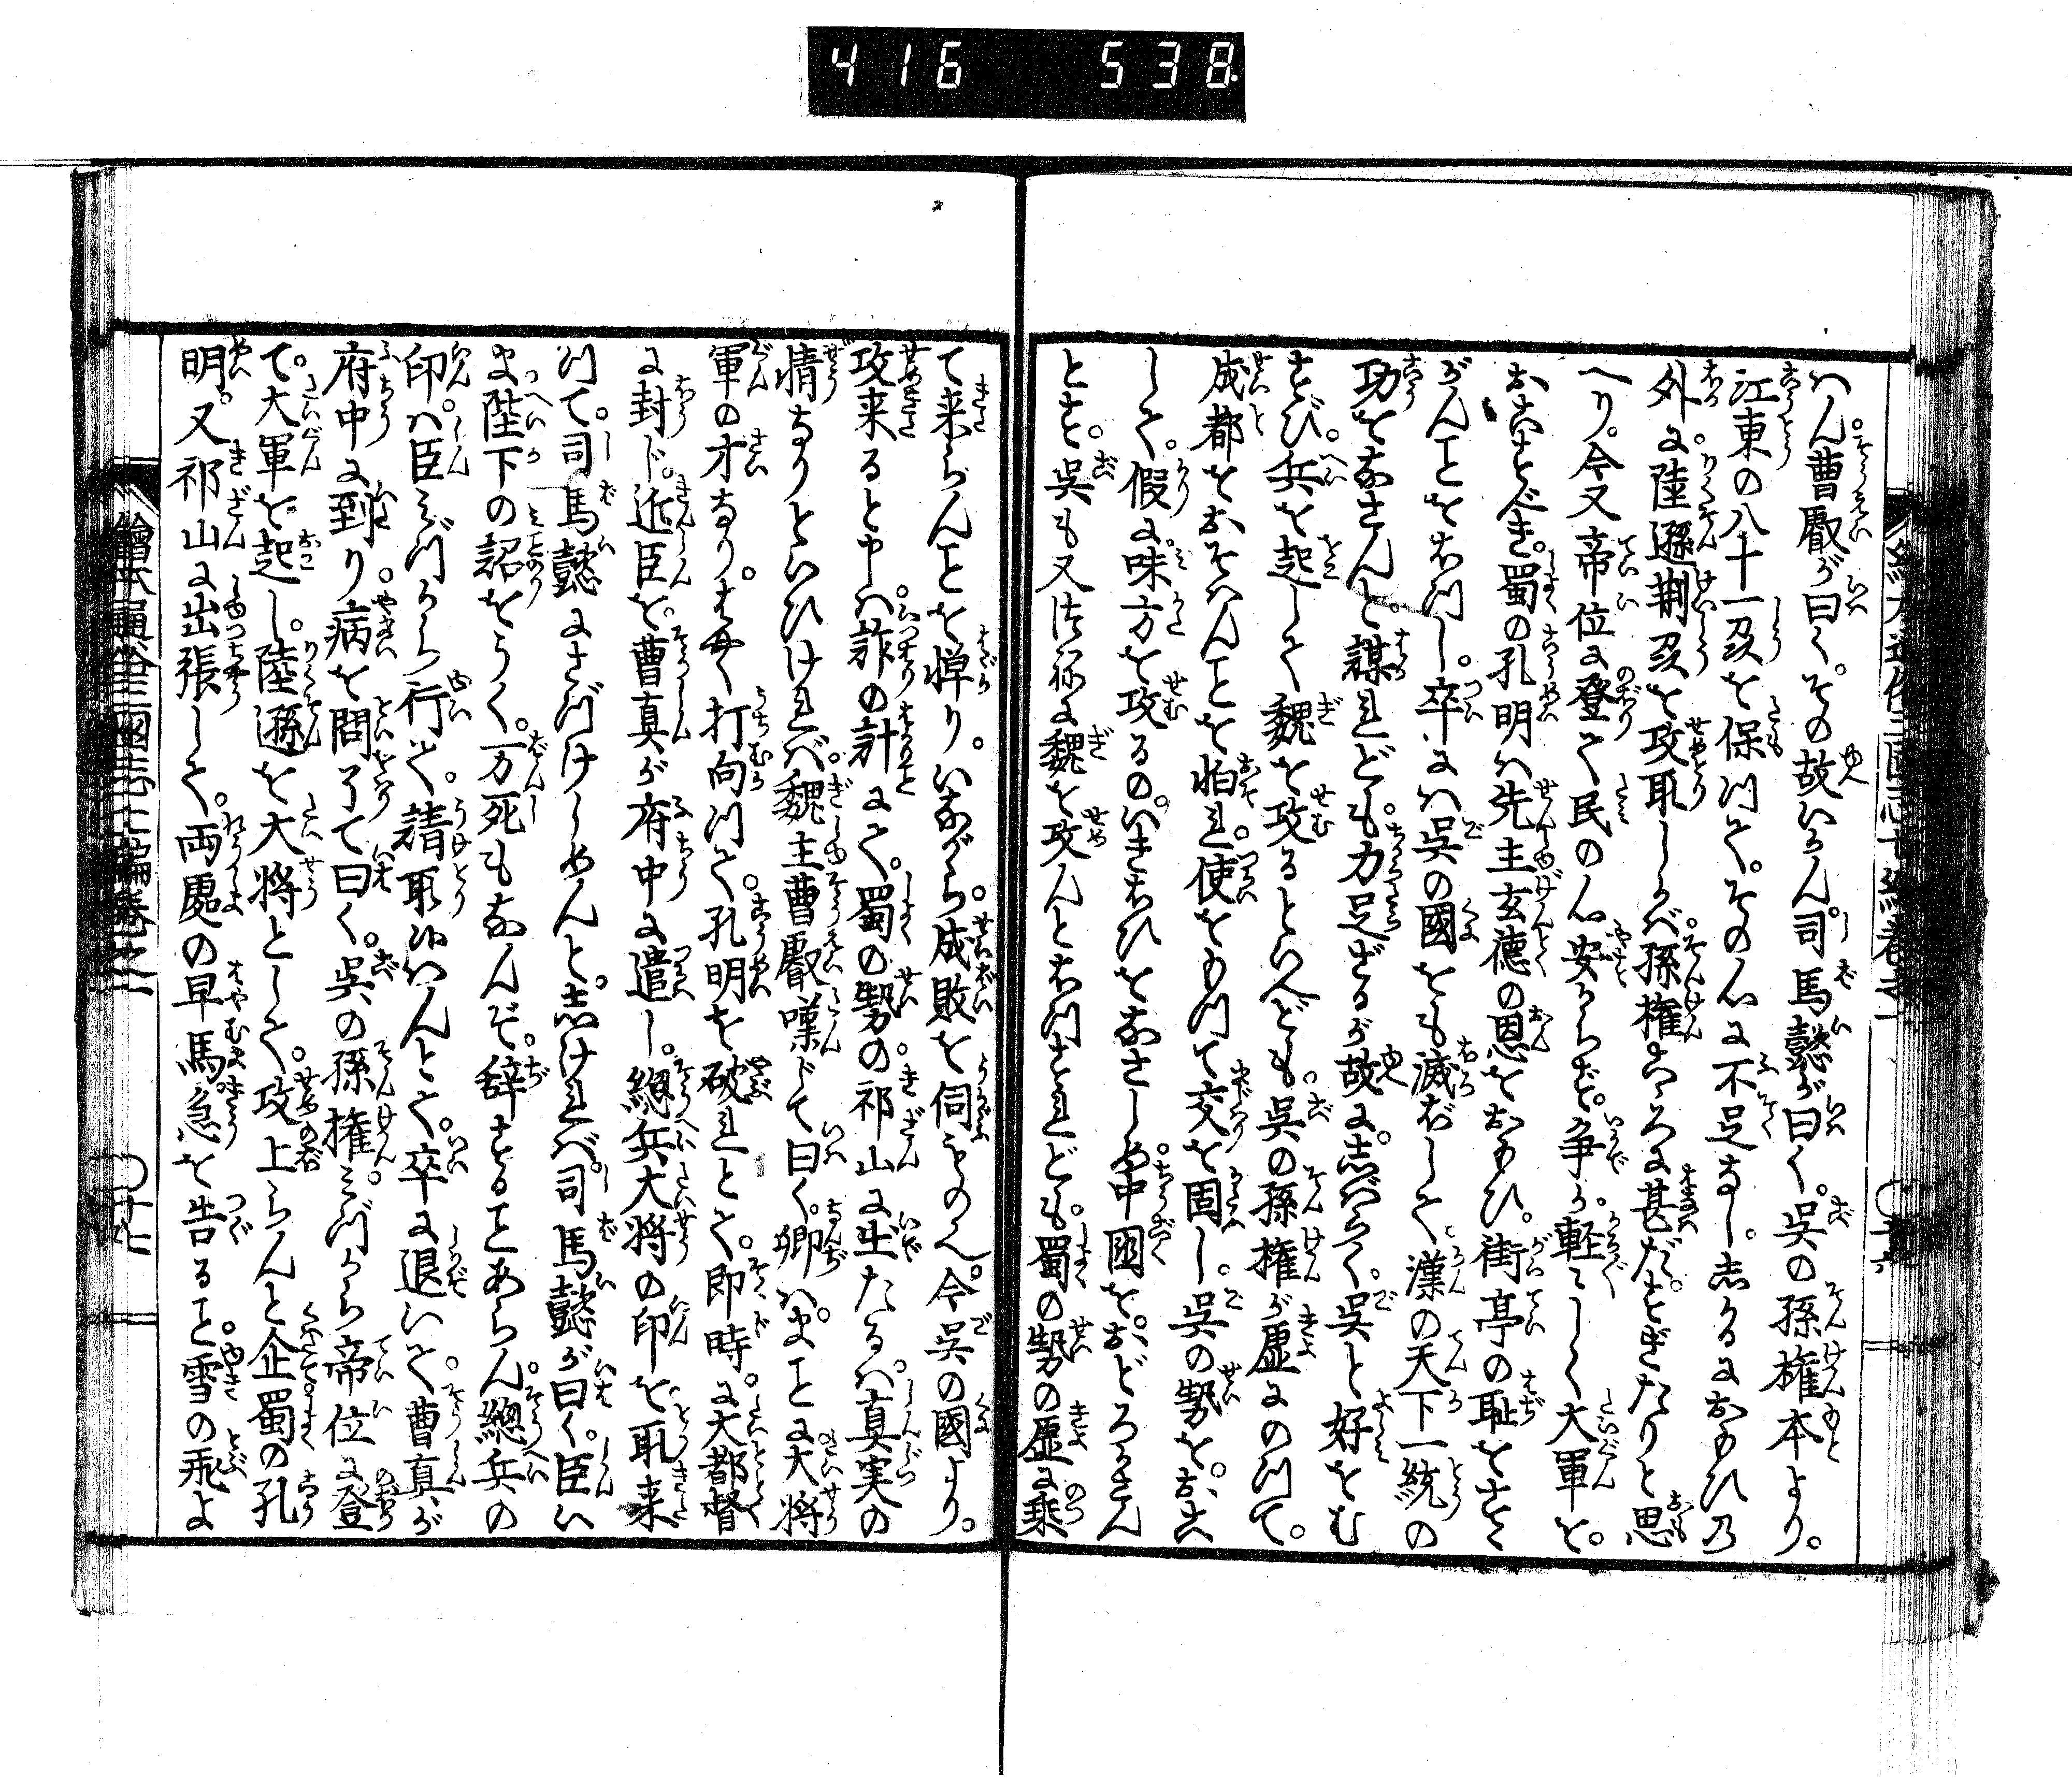 416 538
はん。曹叡が曰く。その故いかん。司馬懿が曰く。呉の孫権本より。
江東の八十一郡を保つて。その心に不足なし。しかるにおもひの
外に。陸遜荊州を攻取しかば。孫権こゝろに甚だ。すぎたりと思
へり。今又帝位に登て民の心安からず。争か。軽々しく大軍を。
おこすべき。蜀の孔明は先主玄徳の恩をおもひ。街亭の恥をすゝ
がんことをおつし。卒には呉の國をも滅ぼして。漢の天下一統の
功をなさんと。謀れども。力足ざるが故に。しばらく。呉と好をむ
すび。兵を起して魏を攻るといへども。呉の孫権が虚にのつて。
成都をおそはんことを怕れ。使をもつて交を固し。呉の勢を。おこ
して。假に味方を攻るの。いきおひをなさしめ。中國を。おどろかさん
とす。呉も又つねに魏を攻んとおつすれども。蜀の勢の虚に乗
て来らんことを憚り。いながら。成敗を伺ものく。今呉の國より。
攻来ると申は。詐の計にて。蜀の勢の。祁山に出たるは。真実の
情なりといひければ。魏主曹叡嘆じて曰く。卿は。まことに大将
軍の才なり。はやく打向つて。孔明を破れとて。即時。に大都督
に封じ。近臣を。曹真が府中に遣し。總兵大将の印を取来
つて。司馬懿にさづけしめんと。しければ。司馬懿が曰く。臣い
ま陛下の詔をうく。万死もなんぞ。辞することあらん。總兵の
印。は臣みづから行て。請取候はんとて。卒に退いて曹真が
府中に到り。病を問了て曰く。呉の孫権。みづから帝位に登
て。大軍を起し。陸遜を大将として。攻上らんと企蜀の孔
明。又祁山に出張して。両處の早馬急を告ること。雪の飛よ